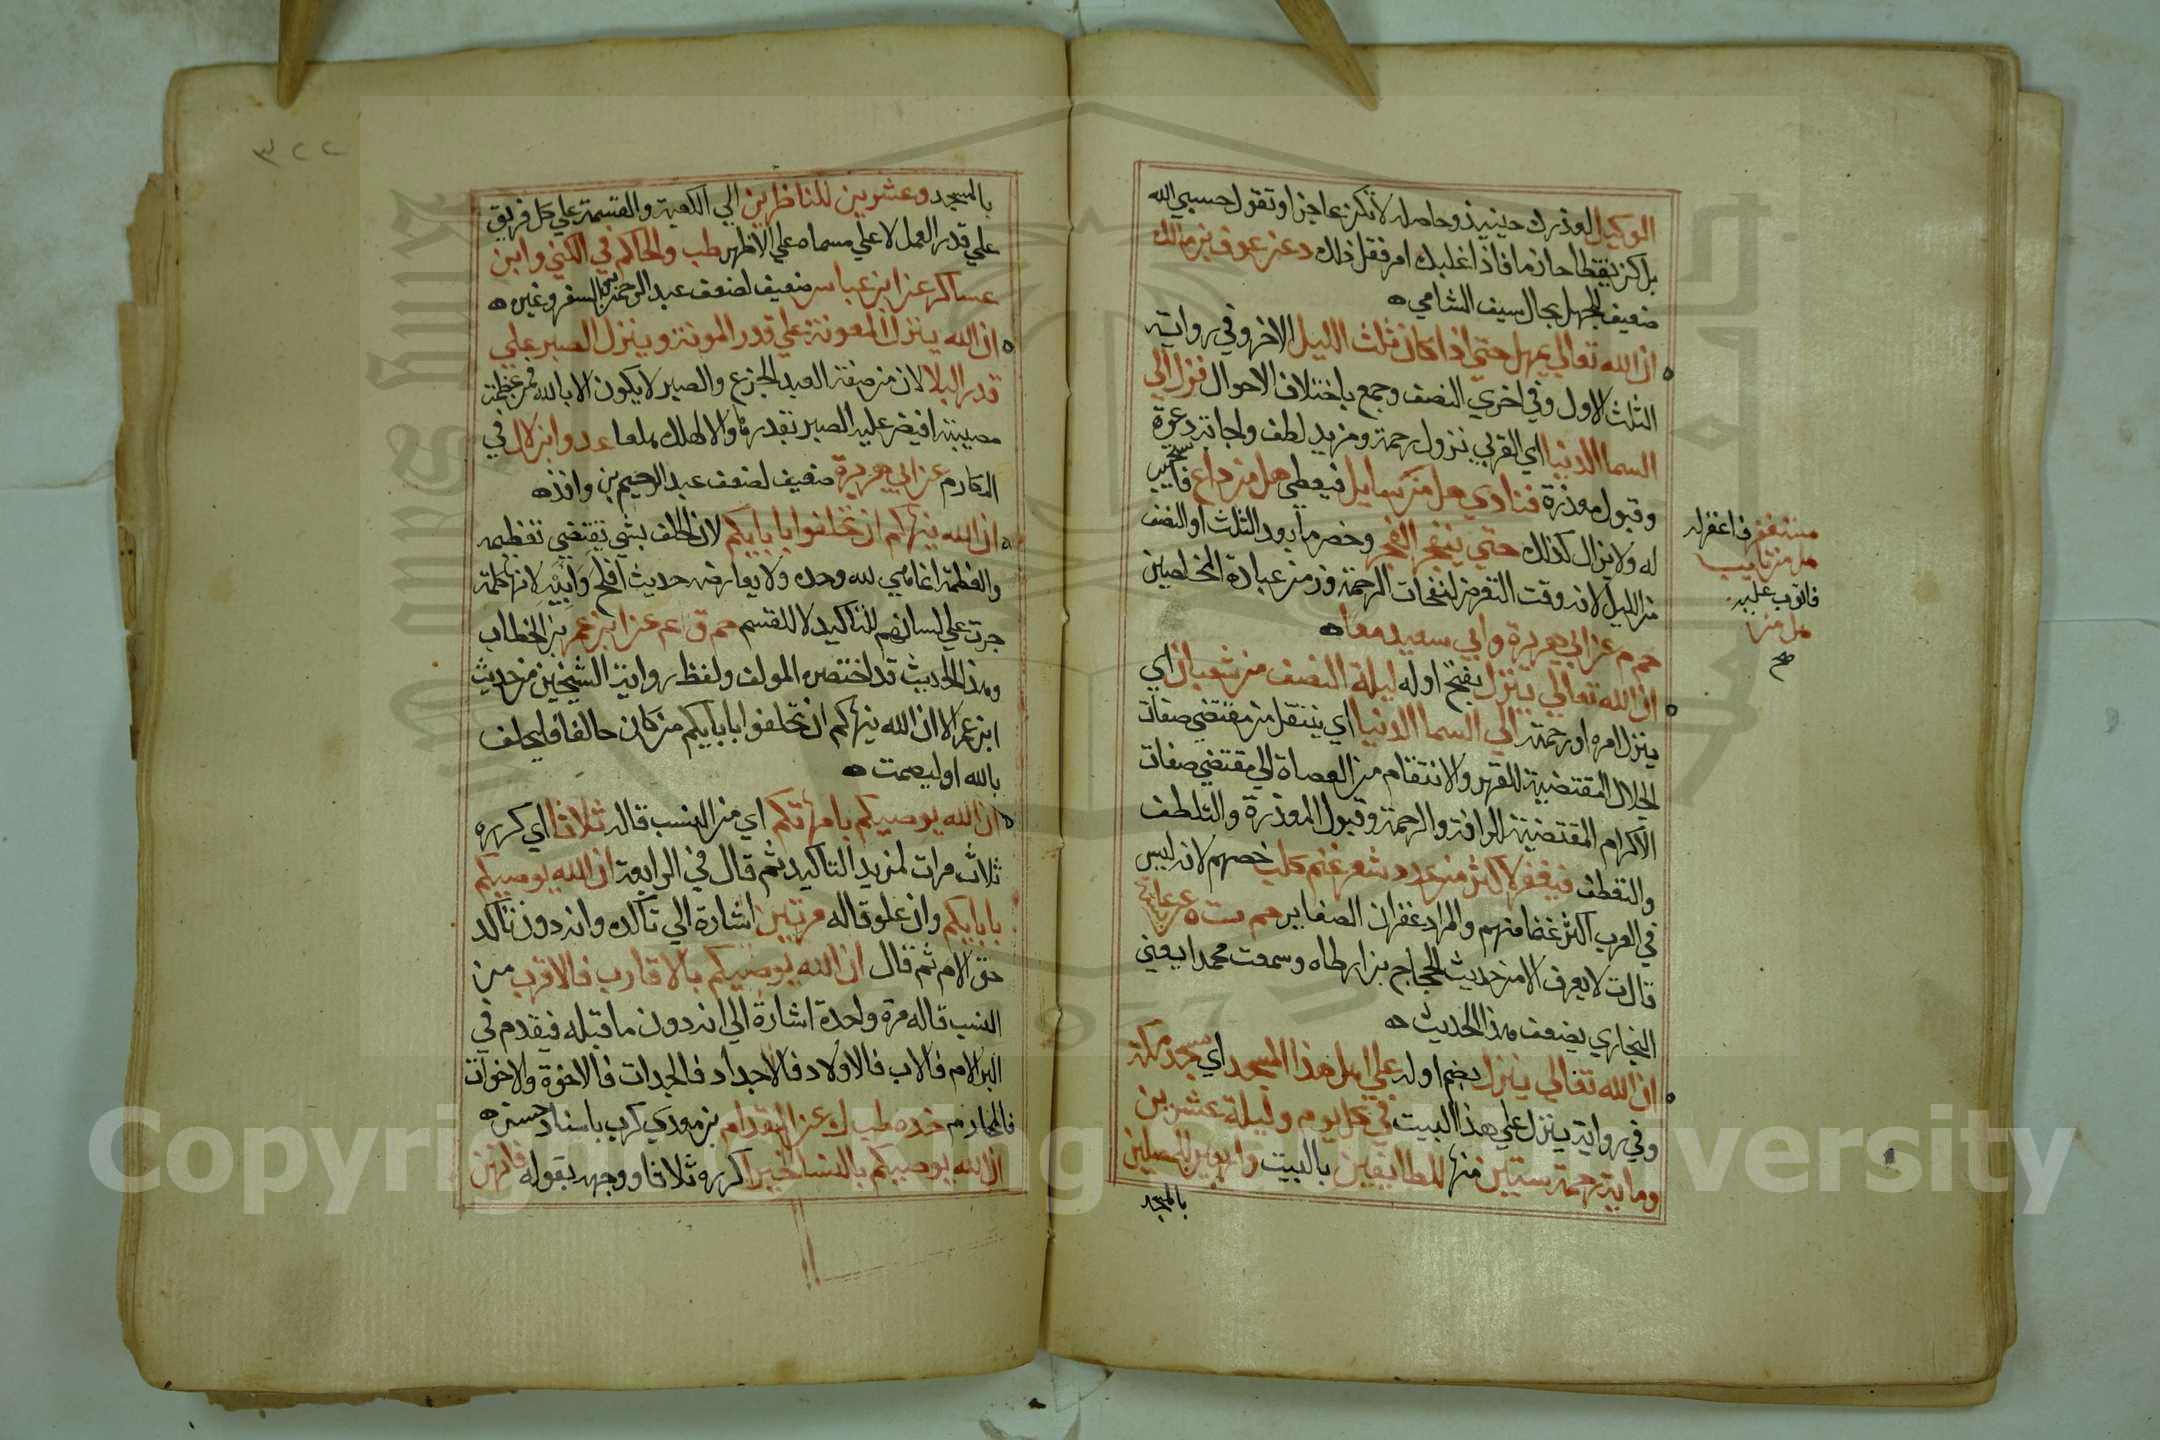 الوكيل لعذرك حينيذ وحاصله لا تكن عاجزا وتقول حسبي الله
بل كن يقظا حازما فاذا غلبك امر فقل ذلك د عن عوف بن مالك
ضعيف لجهل بحال سيف الشامي ه
ان الله تعالي يمهل حتي اذا كان ثلث الليل الاخر وفي رواية
الثلث الاول وفي اخري النصف وجمع باختلاف الاحوال فنزل الي
السما الدنيا اي القربي نزول رحمة ومزيد لطف واجابة دعوة
وقبول معذرة فنادي هل من سايل فيعطي هل من داع فاستجيب
له ولا يزال كذلك حتي ينفجر الفجر وخص ما بعد الثلث او النصف
من الليل لانه وقت التعرض لنفحات الرحمة وزمن عبادة المخلصين
حم م عن ابي هريرة وابي سعيد معا ه
ان الله تعالي ينزل بفتح اوله ليلة النصف من شعبان اي
ينزل امره او رحمته الي السما الدنيا اي ينتقل من مقتضي صفات
الجلال المقتضية للقهر والانتقام من العصاة الي مقتضي صفات
الاكرام المقتضية للرافة والرحمة وقبول المعذرة والتلطف
والتعطف فيغفر لاكثر من عدد شعر غنم كلب خصهم لانه ليس
في العرب اكثر غنما منهم والمراد غفران الصغاير حم ت ه عن عايشة
قال ت لا يعرف الا من حديث الحجاج بن ارطاه وسمعت محمدا يعني
البخاري يضعف هذا الحديث ه
ان الله تعالي ينزل بضم اوله علي اهل هذا المسجد اي مسجد مكة
وفي رواية ينزل علي هذا البيت في كل يوم وليلة عشرين
وماية رحمة ستين منها للطايفين بالبيت واربعين للمصلين
بالمسجد
مستغفر فاغفر له
هل من تايب
فاتوب عليه
هل من
صح
٣٢٢
بالمسجد وعشرين للناظرين الي الكعبة والقسمة علي كل فريق
علي قدر العمل لا علي مسماه علي الاظهر طب والحاكم في الكني وابن
عساكر عن ابن عباس ضعيف لضعف عبد الرحمن بن السفر وغيره ه
ان الله ينزل المعونة علي قدر المونة وينزل الصبر علي
قدر البلا لان من صفة العبد الجزع والصبر لا يكون الا بالله فمن عظمت
مصيبته افيض عليه الصبر بقدرها والا لهلك هلعا عد وابن لال في
المكارم عن ابي هريرة ضعيف لضعف عبد الرحيم بن واقد ه
ان الله ينهاكم ان تحلفوا بابايكم لان الحلف بشي يقتضي تعظيمه
والعظمة انما هي لله وحده ولا يعارضه حديث افلح وابيه لانها كلمة
جرت علي لسانهم للتاكيد لا للقسم حم ق ٤ عن ابن عمر بن الخطاب
وهذا الحديث قد اختصره المولف ولفظ رواية الشيخين من حديث
ابن عمر الا ان الله ينهاكم ان تحلفوا بابايكم من كان حالفا فليحلف
بالله او ليصمت ه
ان الله يوصيكم بامهاتكم اي من النسب قاله ثلاثا اي كرره
ثلاث مرات لمزيد التاكيد ثم قال في الرابعة ان الله يوصيكم
بابايكم وان علو قاله مرتين اشارة الي تاكده وانه دون تاكد
حق الام ثم قال ان الله يوصيكم بالاقارب فالاقرب من
النسب قاله مرة واحدة اشارة الي انه دون ما قبله فيقدم في
البر الام فالاب فالاولاد فالاجداد فالجدات فالاخوة والاخوات
فالمحارم خد ه طب ك عن المقدام بن معدي كرب باسناد حسن ه
ان الله يوصيكم بالنسا خيرا كرره ثلاثا ووجهه بقوله فانهن
Copyright © King Saud University